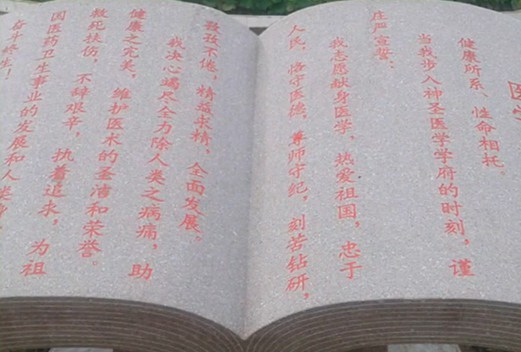 医学
健康所系,性命相托。
当我步入神圣医学学府的时刻,谨
庄严宣誓:
我志愿献身医学,热爱祖国,忠于
人民,恪守医德,尊师守纪,刻苦钻研,
孜孜不倦,精益求精,全面发展。
我决心竭尽全力除人类之病痛,助
健康之完美,维护医术的圣洁和荣誉。
救死扶伤,不辞艰辛,执着追求,为祖
国医药卫生事业的发展和人类身
奋斗终生!